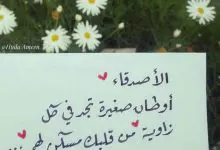 @Huda Ameen
الأصدقاء
أوطان صغيرة تجد في كل
زاوية من قلبك مسكن لهم